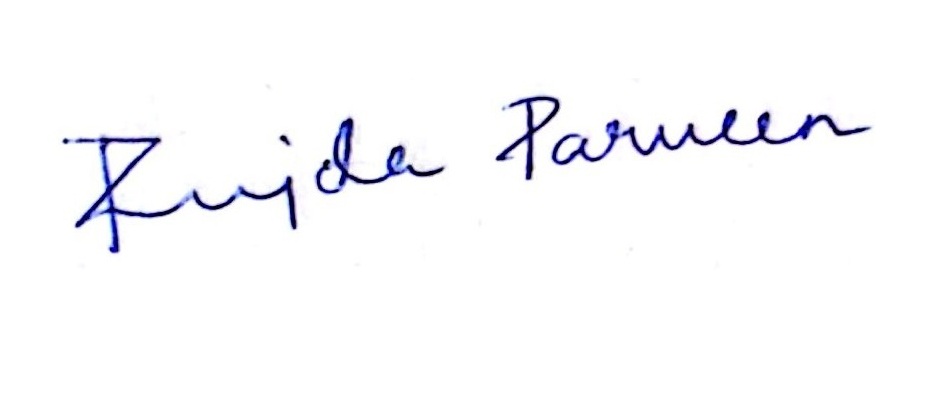 Rujda Parween